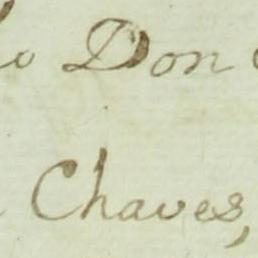 Don
Chaves,